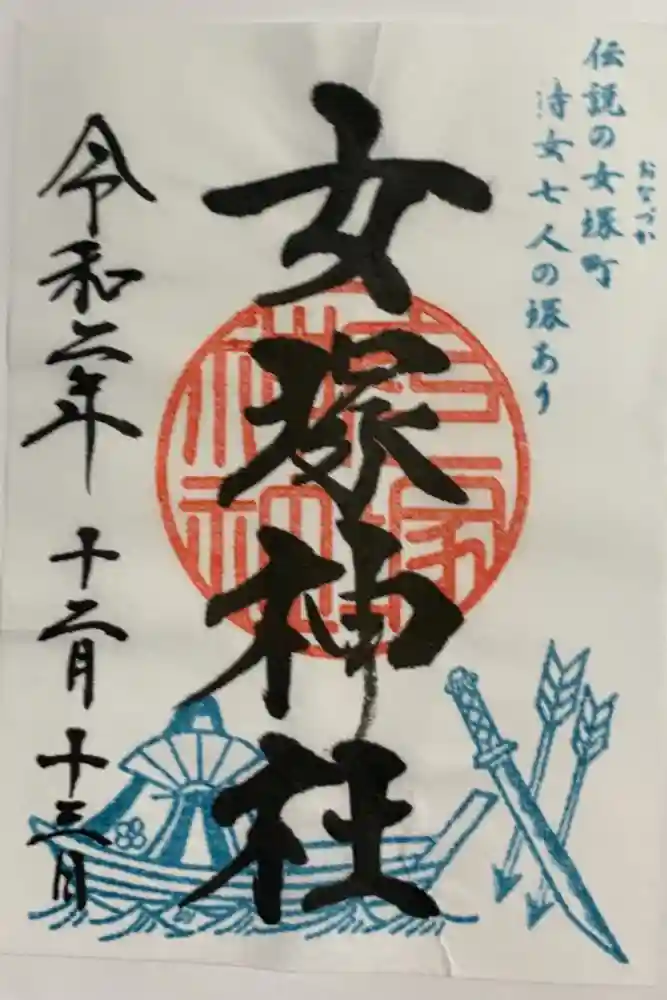 伝説の女塚町
おなづか
侍女七人の塚あり
女塚神社
令和二年 十二月 十三日